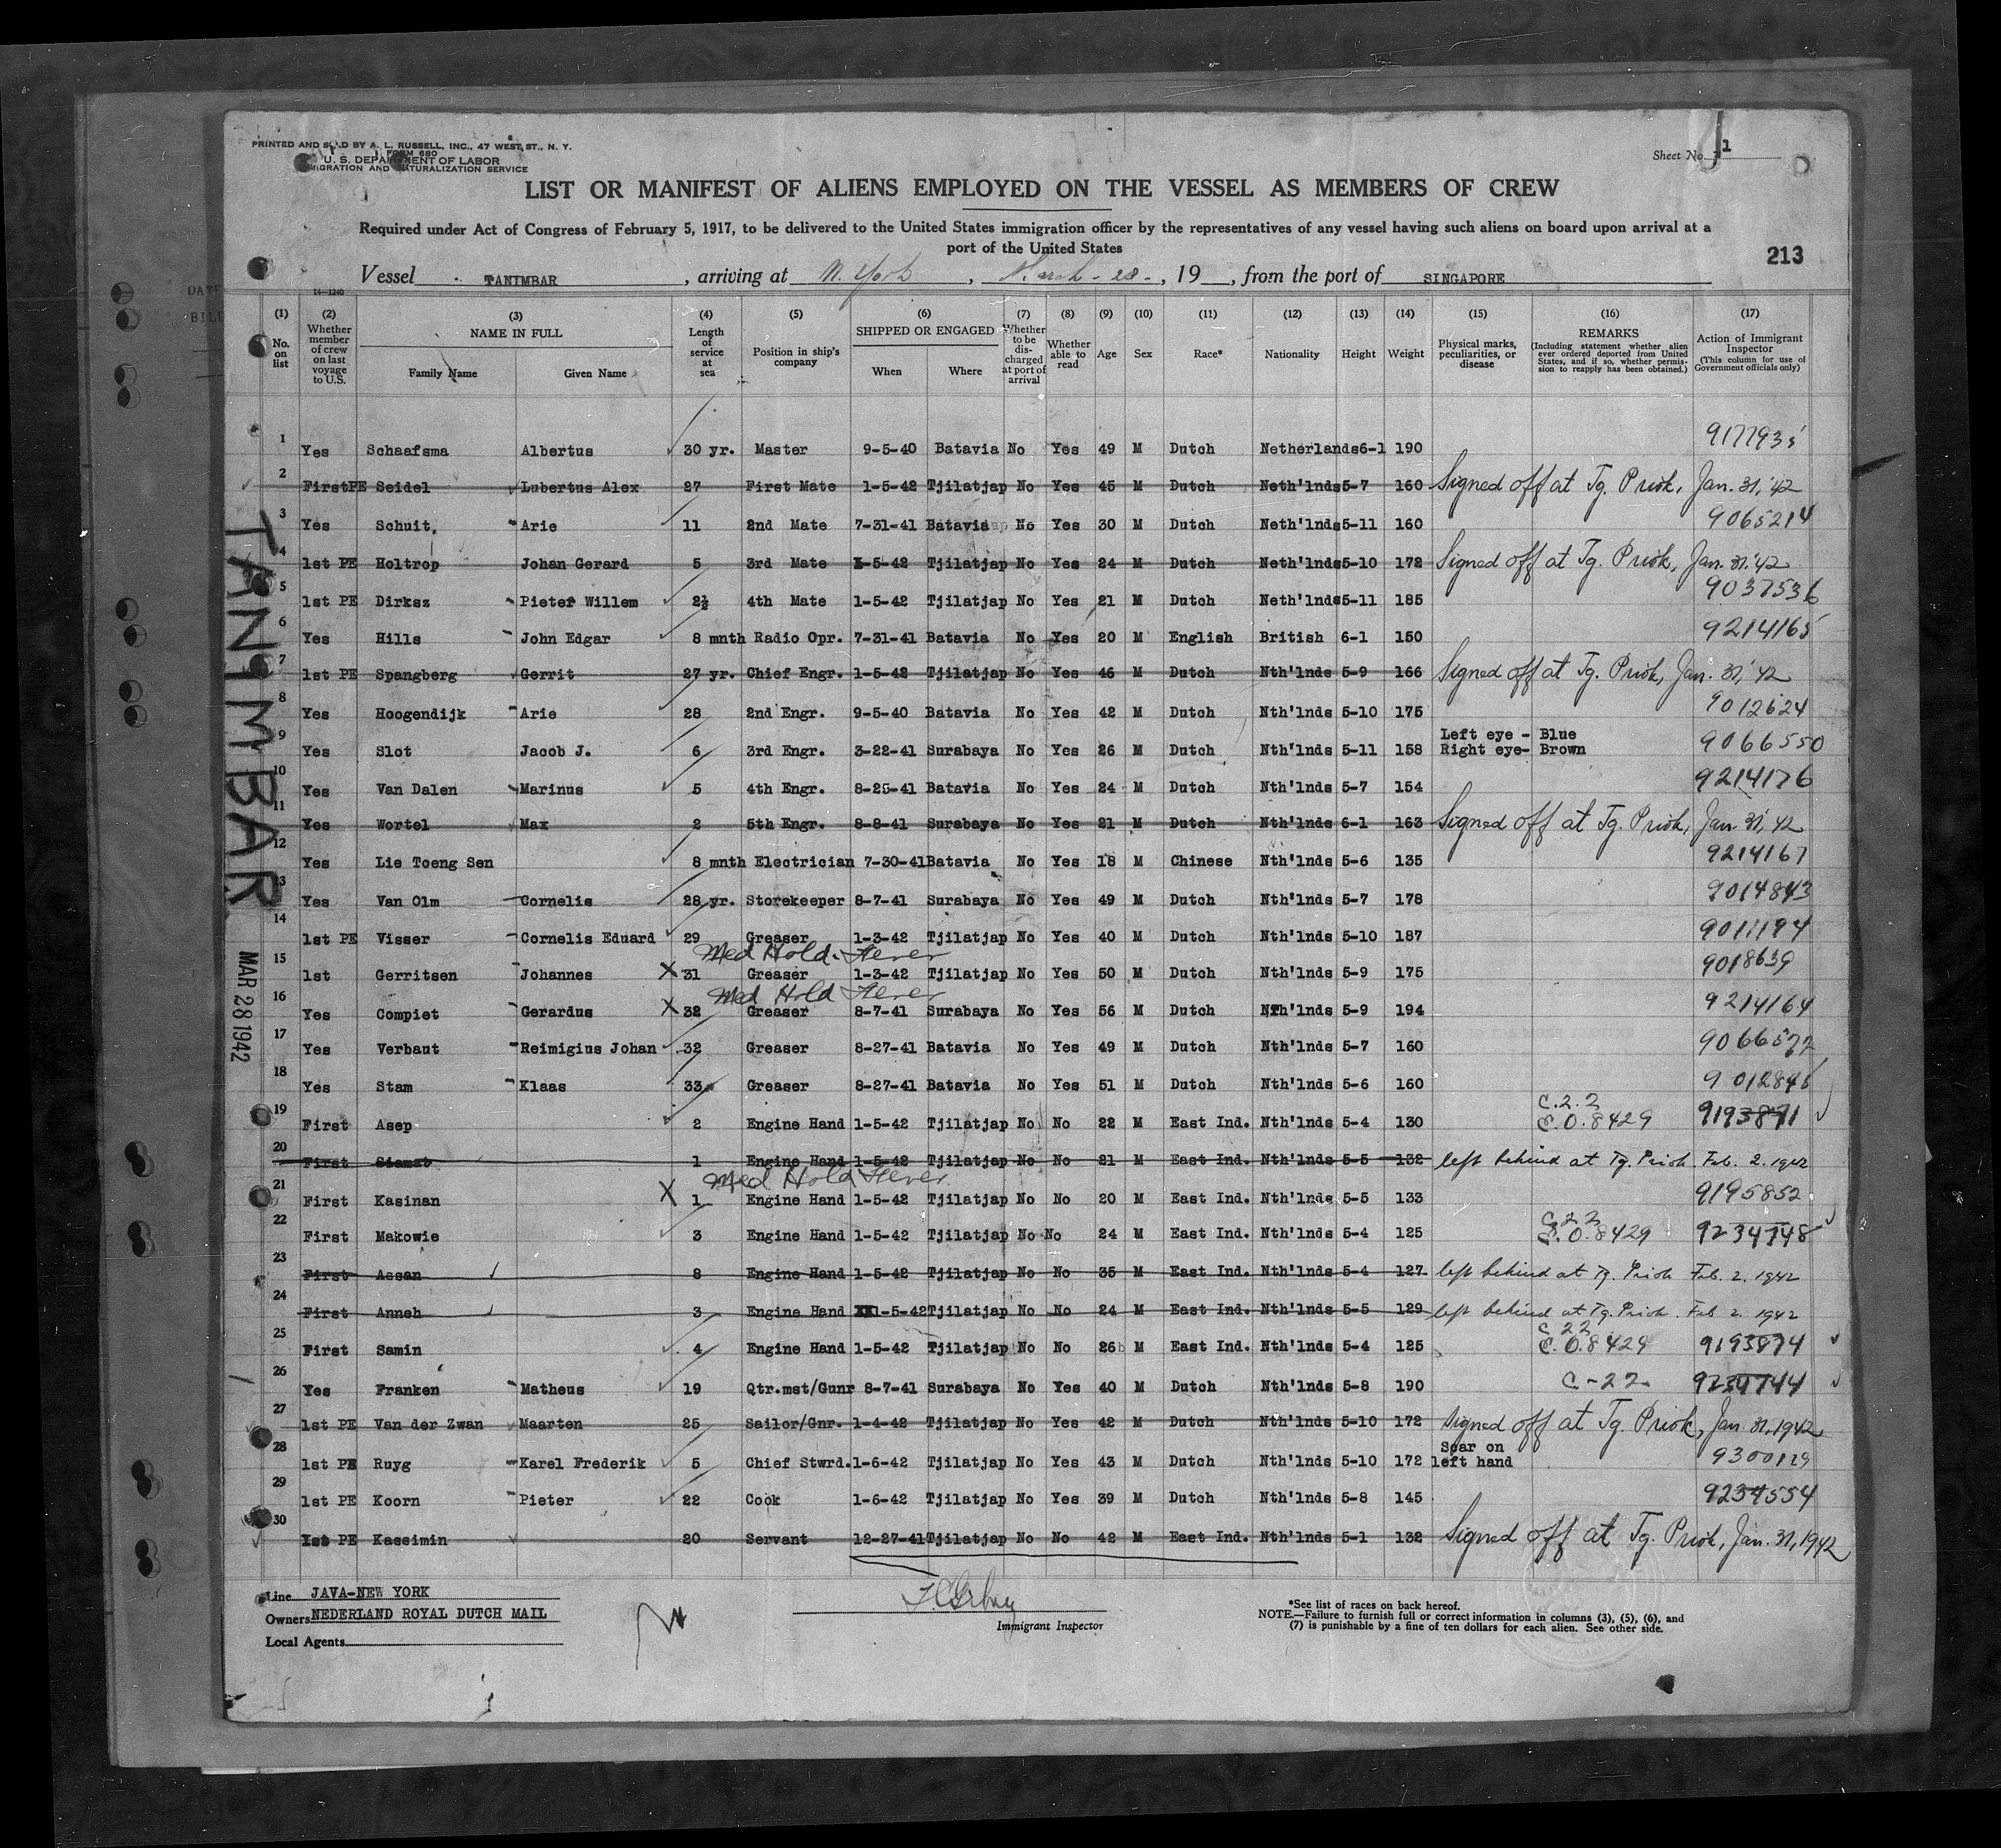 PRINTED AND SOLD BY A. L. RUSSELL, INC., 47 WEST ST., N. Y.
FORM 680
U. S. DEPARTMENT OF LABOR
IMMIGRATION AND NATURALIZATION SERVICE
Sheet No. 1
LIST OR MANIFEST OF ALIENS EMPLOYED ON THE VESSEL AS MEMBERS OF CREW
Required under Act of Congress of February 5, 1917, to be delivered to the United States immigration officer by the representatives of any vessel having such aliens on board upon arrival at a
port of the United States
213
Vessel TANIMBAR, arriving at N. York, March - 28 -, 19 , from the port of SINGAPORE
14-1240
(1) No. on list (2) Whether member of crew on last voyage to U.S. (3) NAME IN FULL Family Name Given Name (4) Length of service at sea (5) Position in ship's company (6) SHIPPED OR ENGAGED When Where (7) Whether to be discharged at port of arrival (8) Whether able to read (9) Age (10) Sex (11) Race* (12) Nationality (13) Height (14) Weight (15) Physical marks, peculiarities, or disease (16) REMARKS (Including statement whether alien ever ordered deported from United States, and if so, whether permission to reapply has been obtained.) (17) Action of Immigrant Inspector (This column for use of Government officials only)
1 Yes Schaafsma Albertus 30 yr. Master 9-5-40 Batavia No Yes 49 M Dutch Netherlands 6-1 190 9177935
2 FirstPE Seidel Lubertus Alex 27 First Mate 1-5-42 Tjilatjap No Yes 45 M Dutch Neth'lnds 5-7 160 Signed off at Tg. Priok, Jan. 31, '42
3 Yes Schuit, Arie 11 2nd Mate 7-31-41 Batavia No Yes 30 M Dutch Neth'lnds 5-11 160 9065214
4 1st PE Holtrop Johan Gerard 5 3rd Mate 1-5-42 Tjilatjap No Yes 24 M Dutch Neth'lnds 5-10 172 Signed off at Tg. Priok, Jan. 31, '42
5 1st PE Dirksz Pieter Willem 2½ 4th Mate 1-5-42 Tjilatjap No Yes 21 M Dutch Neth'lnds 5-11 185 9037536
6 Yes Hills John Edgar 8 mnth Radio Opr. 7-31-41 Batavia No Yes 20 M English British 6-1 150 9214165
7 1st PE Spangberg Gerrit 27 yr. Chief Engr. 1-5-42 Tjilatjap No Yes 46 M Dutch Nth'lnds 5-9 166 Signed off at Tg. Priok, Jan. 31, '42
8 Yes Hoogendijk Arie 28 2nd Engr. 9-5-40 Batavia No Yes 42 M Dutch Nth'lnds 5-10 175 9012624
9 Yes Slot Jacob J. 6 3rd Engr. 3-22-41 Surabaya No Yes 26 M Dutch Nth'lnds 5-11 158 Left eye - Blue Right eye- Brown 9066550
10 Yes Van Dalen Marinus 5 4th Engr. 8-25-41 Batavia No Yes 24 M Dutch Nth'lnds 5-7 154 9214176
11 Yes Wortel Max 2 5th Engr. 8-8-41 Surabaya No Yes 21 M Dutch Nth'lnds 6-1 163 Signed off at Tg. Priok, Jan. 31, '42
12 Yes Lie Toeng Sen 8 mnth Electrician 7-30-41 Batavia No Yes 18 M Chinese Nth'lnds 5-6 135 9214167
13 Yes Van Olm Cornelis 28 yr. Storekeeper 8-7-41 Surabaya No Yes 49 M Dutch Nth'lnds 5-7 178 9014843
14 1st PE Visser Cornelis Eduard 29 Greaser 1-3-42 Tjilatjap No Yes 40 M Dutch Nth'lnds 5-10 187 9011194
Med Hold. Fever
15 1st Gerritsen Johannes X 31 Greaser 1-3-42 Tjilatjap No Yes 50 M Dutch Nth'lnds 5-9 175 9018639
Med Hold Fever
16 Yes Compiet Gerardus X 32 Greaser 8-7-41 Surabaya No Yes 56 M Dutch Nth'lnds 5-9 194 9214164
17 Yes Verbaut Reimigius Johan 32 Greaser 8-27-41 Batavia No Yes 49 M Dutch Nth'lnds 5-7 160 9066577
18 Yes Stam Klaas 33 Greaser 8-27-41 Batavia No Yes 51 M Dutch Nth'lnds 5-6 160 9012846
19 First Asep 2 Engine Hand 1-5-42 Tjilatjap No No 22 M East Ind. Nth'lnds 5-4 130 C.22 E.O.8429 9193871
20 First Siamat 1 Engine Hand 1-5-42 Tjilatjap No No 21 M East Ind. Nth'lnds 5-5 132 left behind at Tg. Priok Feb. 2. 1942
Med Hold Fever
21 First Kasinan X 1 Engine Hand 1-5-42 Tjilatjap No No 20 M East Ind. Nth'lnds 5-5 133 9195852
22 First Makowie 3 Engine Hand 1-5-42 Tjilatjap No No 24 M East Ind. Nth'lnds 5-4 125 C.22 E.O.8429 9234748
23 First Assan 8 Engine Hand 1-5-42 Tjilatjap No No 35 M East Ind. Nth'lnds 5-4 127 left behind at Tg. Priok Feb. 2. 1942
24 First Anneh 3 Engine Hand 1-5-42 Tjilatjap No No 24 M East Ind. Nth'lnds 5-5 129 left behind at Tg. Priok. Feb 2. 1942
25 First Samin 4 Engine Hand 1-5-42 Tjilatjap No No 26 M East Ind. Nth'lnds 5-4 125 C 22 E.O.8429 9193874
26 Yes Franken Matheus 19 Qtr.mst/Gunr 8-7-41 Surabaya No Yes 40 M Dutch Nth'lnds 5-8 190 C-22 9234744
27 1st PE Van der Zwan Maarten 25 Sailor/Gnr. 1-4-42 Tjilatjap No Yes 42 M Dutch Nth'lnds 5-10 172 Signed off at Tg. Priok, Jan. 31, 1942
28 1st PE Ruyg Karel Frederik 5 Chief Stwrd. 1-6-42 Tjilatjap No Yes 43 M Dutch Nth'lnds 5-10 172 Scar on left hand 9300129
29 1st PE Koorn Pieter 22 Cook 1-6-42 Tjilatjap No Yes 39 M Dutch Nth'lnds 5-8 145 9234554
30 1st PE Kassimin 20 Servant 12-27-41 Tjilatjap No No 42 M East Ind. Nth'lnds 5-1 132 Signed off at Tg. Priok, Jan. 31, 1942
TANIMBAR
MAR 28 1942
Line JAVA-NEW YORK
Owners NEDERLAND ROYAL DUTCH MAIL
Local Agents
Immigrant Inspector
*See list of races on back hereof.
NOTE.—Failure to furnish full or correct information in columns (3), (5), (6), and
(7) is punishable by a fine of ten dollars for each alien. See other side.